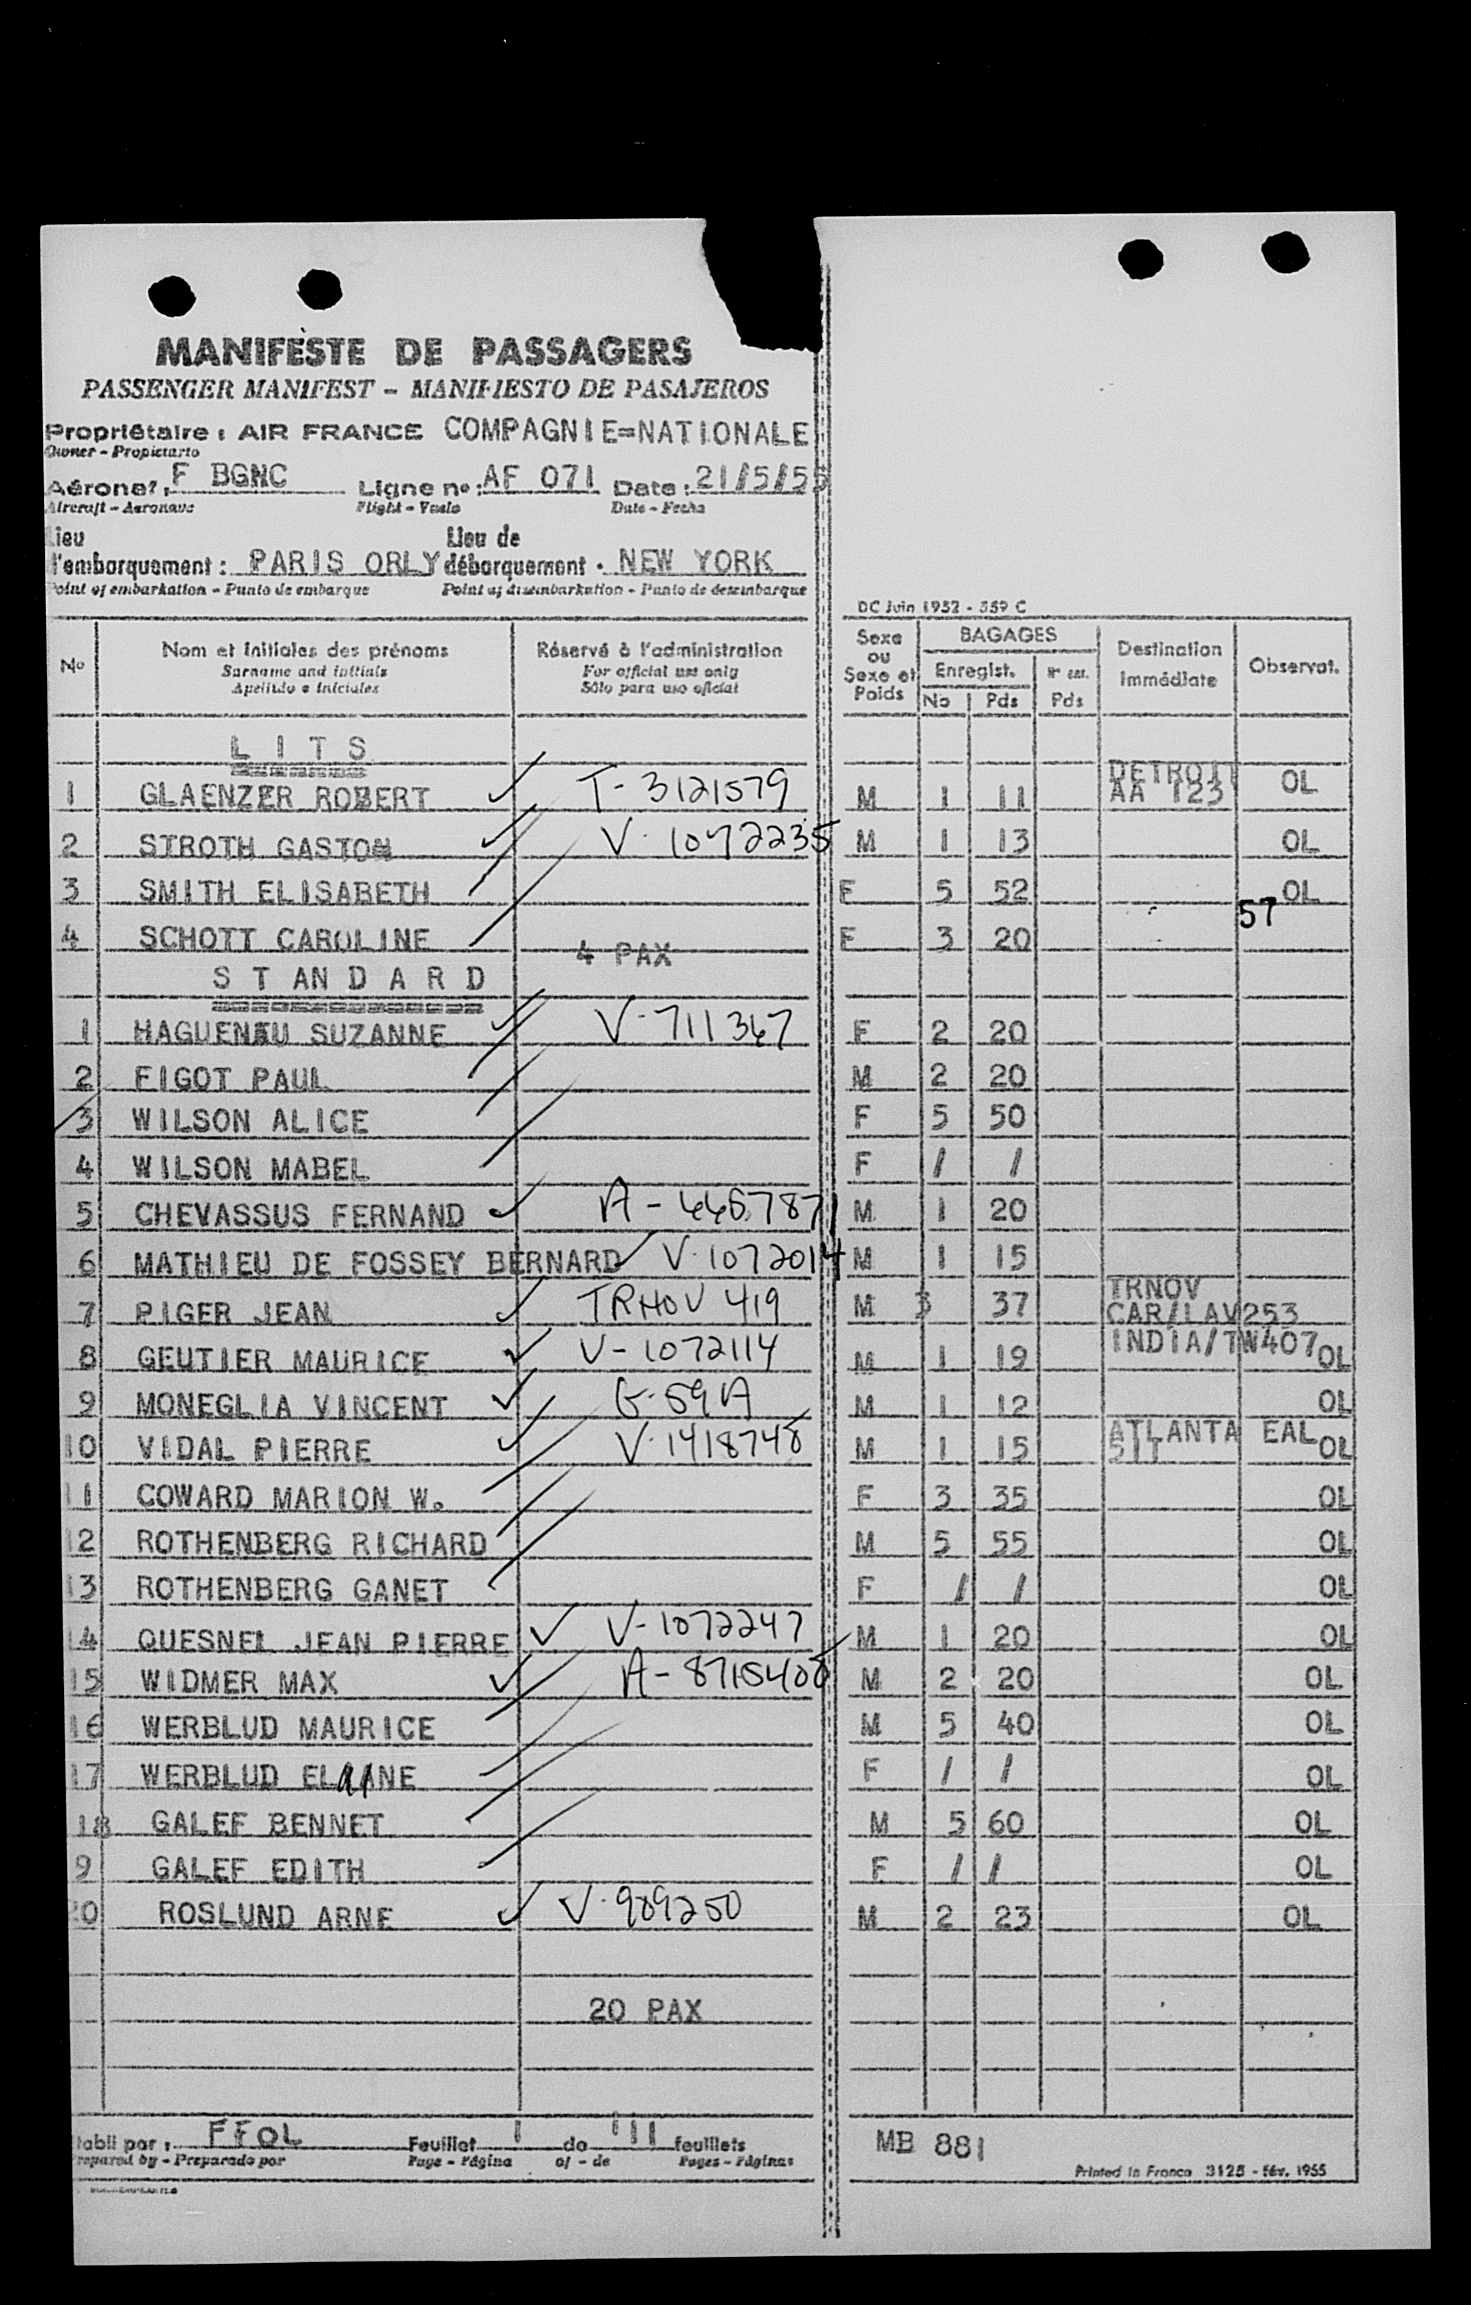 MANIFESTE DE PASSAGERS
PASSENGER MANIFEST - MANIFIESTO DE PASAJEROS
Propriétaire : AIR FRANCE COMPAGNIE=NATIONALE
Owner - Propietario
Aéronef : F BGNC Ligne no : AF 071 Date : 21/5/55
Aircraft - Aeronave Flight - Vuelo Date - Fecha
Lieu Lieu de
d'embarquement : PARIS ORLY débarquement : NEW YORK
Point of embarkation - Punto de embarque Point of disembarkation - Punto de desembarque
DC Juin 1952 - 359 C
No Nom et initiales des prénoms Réservé à l'administration Sexe ou Sexe et Poids BAGAGES Destination immédiate Observat.
Surname and initials For official use only Enregist.
Apellido e iniciales Sólo para uso oficial No Pds Pds
LITS
1 GLAENZER ROBERT T-3121579 M 1 11 DETROIT AA 123 OL
2 STROTH GASTON V-1072235 M 1 13 OL
3 SMITH ELISABETH F 5 52 OL
57
4 SCHOTT CAROLINE F 3 20
4 PAX
STANDARD
1 HAGUENAU SUZANNE V-711367 F 2 20
2 FIGOT PAUL M 2 20
3 WILSON ALICE F 5 50
4 WILSON MABEL F / /
5 CHEVASSUS FERNAND M 1 20
6 MATHIEU DE FOSSEY BERNARD V-1072014 M 1 15
7 PIGER JEAN TRNOV 419 M 3 37 TRNOV CAR/LAV253
8 GEUTIER MAURICE V-1072114 M 1 19 INDIA/TW407 OL
9 MONEGLIA VINCENT G-59A M 1 12 OL
10 VIDAL PIERRE V-1418748 M 1 15 ATLANTA EAL 511 OL
11 COWARD MARION W. F 3 35 OL
12 ROTHENBERG RICHARD M 5 55 OL
13 ROTHENBERG GANET F / / OL
14 QUESNEL JEAN PIERRE V-1072247 M 1 20 OL
15 WIDMER MAX A-8715408 M 2 20 OL
16 WERBLUD MAURICE M 5 40 OL
17 WERBLUD ELAINE F / / OL
18 GALEF BENNET M 5 60 OL
9 GALEF EDITH F / / OL
20 ROSLUND ARNE V-989250 M 2 23 OL
20 PAX
Etabli par : FFOL Feuillet 1 de 111 feuillets
Prepared by - Preparado por Page - Página of - de Pages - Páginas
MB 881
Printed in France 3125 - fév. 1955